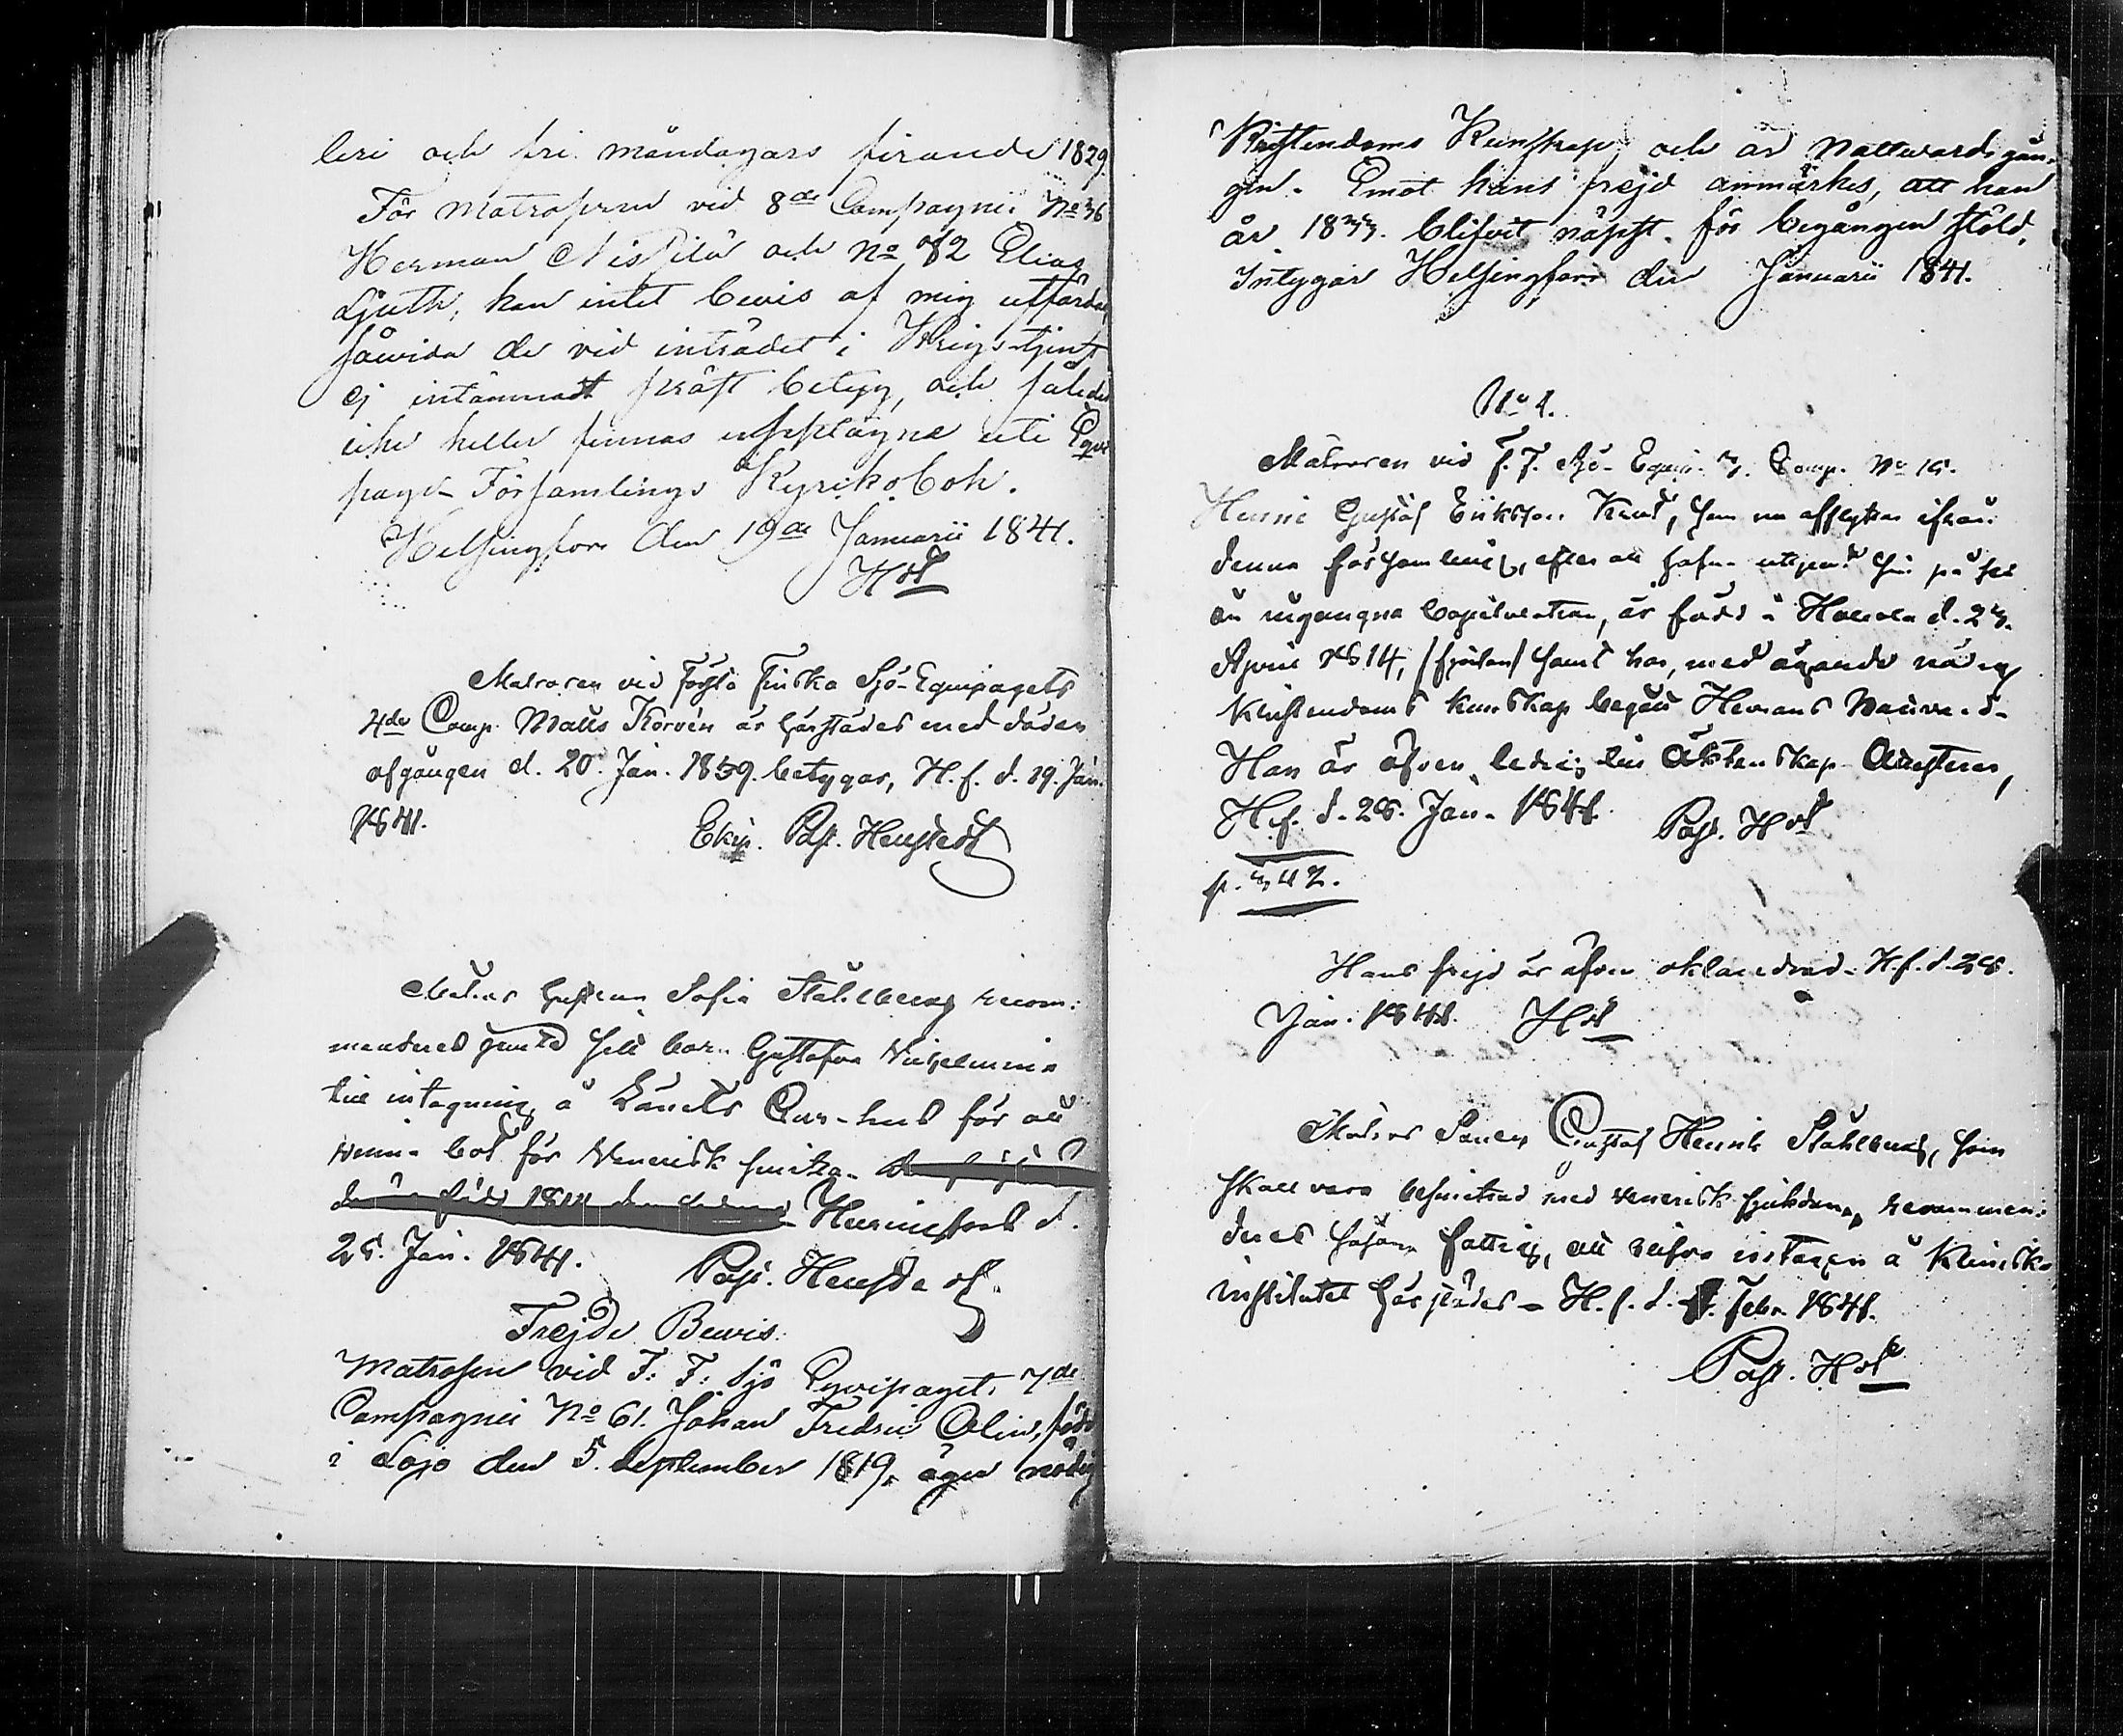 leri och tri måndagars firande 1829.
För Matroserne vid 8de Compagnie No 36
Herman och No 82 Elias
Ljuth, kan intet bevis af mig utfärdas,
såvida de vid inträdet i Krigstjenst
ej inlämnadt präst betyg, och således
icke heller finnas upptagne uti Equi
page Församlings Kyrkobok.
Helsingfors den 19de Januarii 1841.
Hst
Matrosen vid Första Finska Sjö-Equipagets
4de Comp. Matts Korvén är härstädes med döden
afgången d. 20. Jan. 1839. betygar, H.f. d. 19. Jan.
1841.
Ekip. Past. Hengstedt
Matros Hustrun Sofia Ståhlberg recom:
menderas jemte sitt barn Gustafva Vilhelmina
till intagning å Länets Cur-hus för att
vinna bot för Venerisk smitta.
född 1814 Helsingfors d.
25. Jan. 1841.
Past.
Frejde Bevis.
Matrosen vid F. F. Sjö Equipagets 7de
Compagnie No 61. Johan Fredric Olin, född
i Lojo den 5. September 1819, äger nödig
Kristendoms Kunskap och är Nattvardsgån-
gen. Emot hans frejd anmärkes, att han
år 1833. blifvit näpst för begången stöld,
Intygar Helsingfors den Januarii 1841.
No 1.
Matrosen vid F. F. Sjö-Equip. 3. Comp. No 15.
Henric Gustaf Eriksson som nu afflyttar ifrån
denna församling, efter att hafva sin på
år ingångna Capitulation, är född i Hollola d. 23.
April 1814, (fjorton) samt har, med ägande nödig
Kristendoms kunskap begått Herrans Nattvard.
Han är äfven ledig till Äktenskap. Attesteras,
H.f. d. 28. Jan. 1841. Past. Hst
p. 342.
Hans frejd är äfven oklandrad. H.f. d. 28.
Jan. 1841. Hst
Matros Sonen Gustaf Henrik Ståhlberg, som
skall vara besmittad med Venerisk sjukdom, recommen:
deras såsom fattig, att blifva intagen å Kliniska
institutet härstädes. H.f. d. 1. Febr. 1841.
Past. Hst